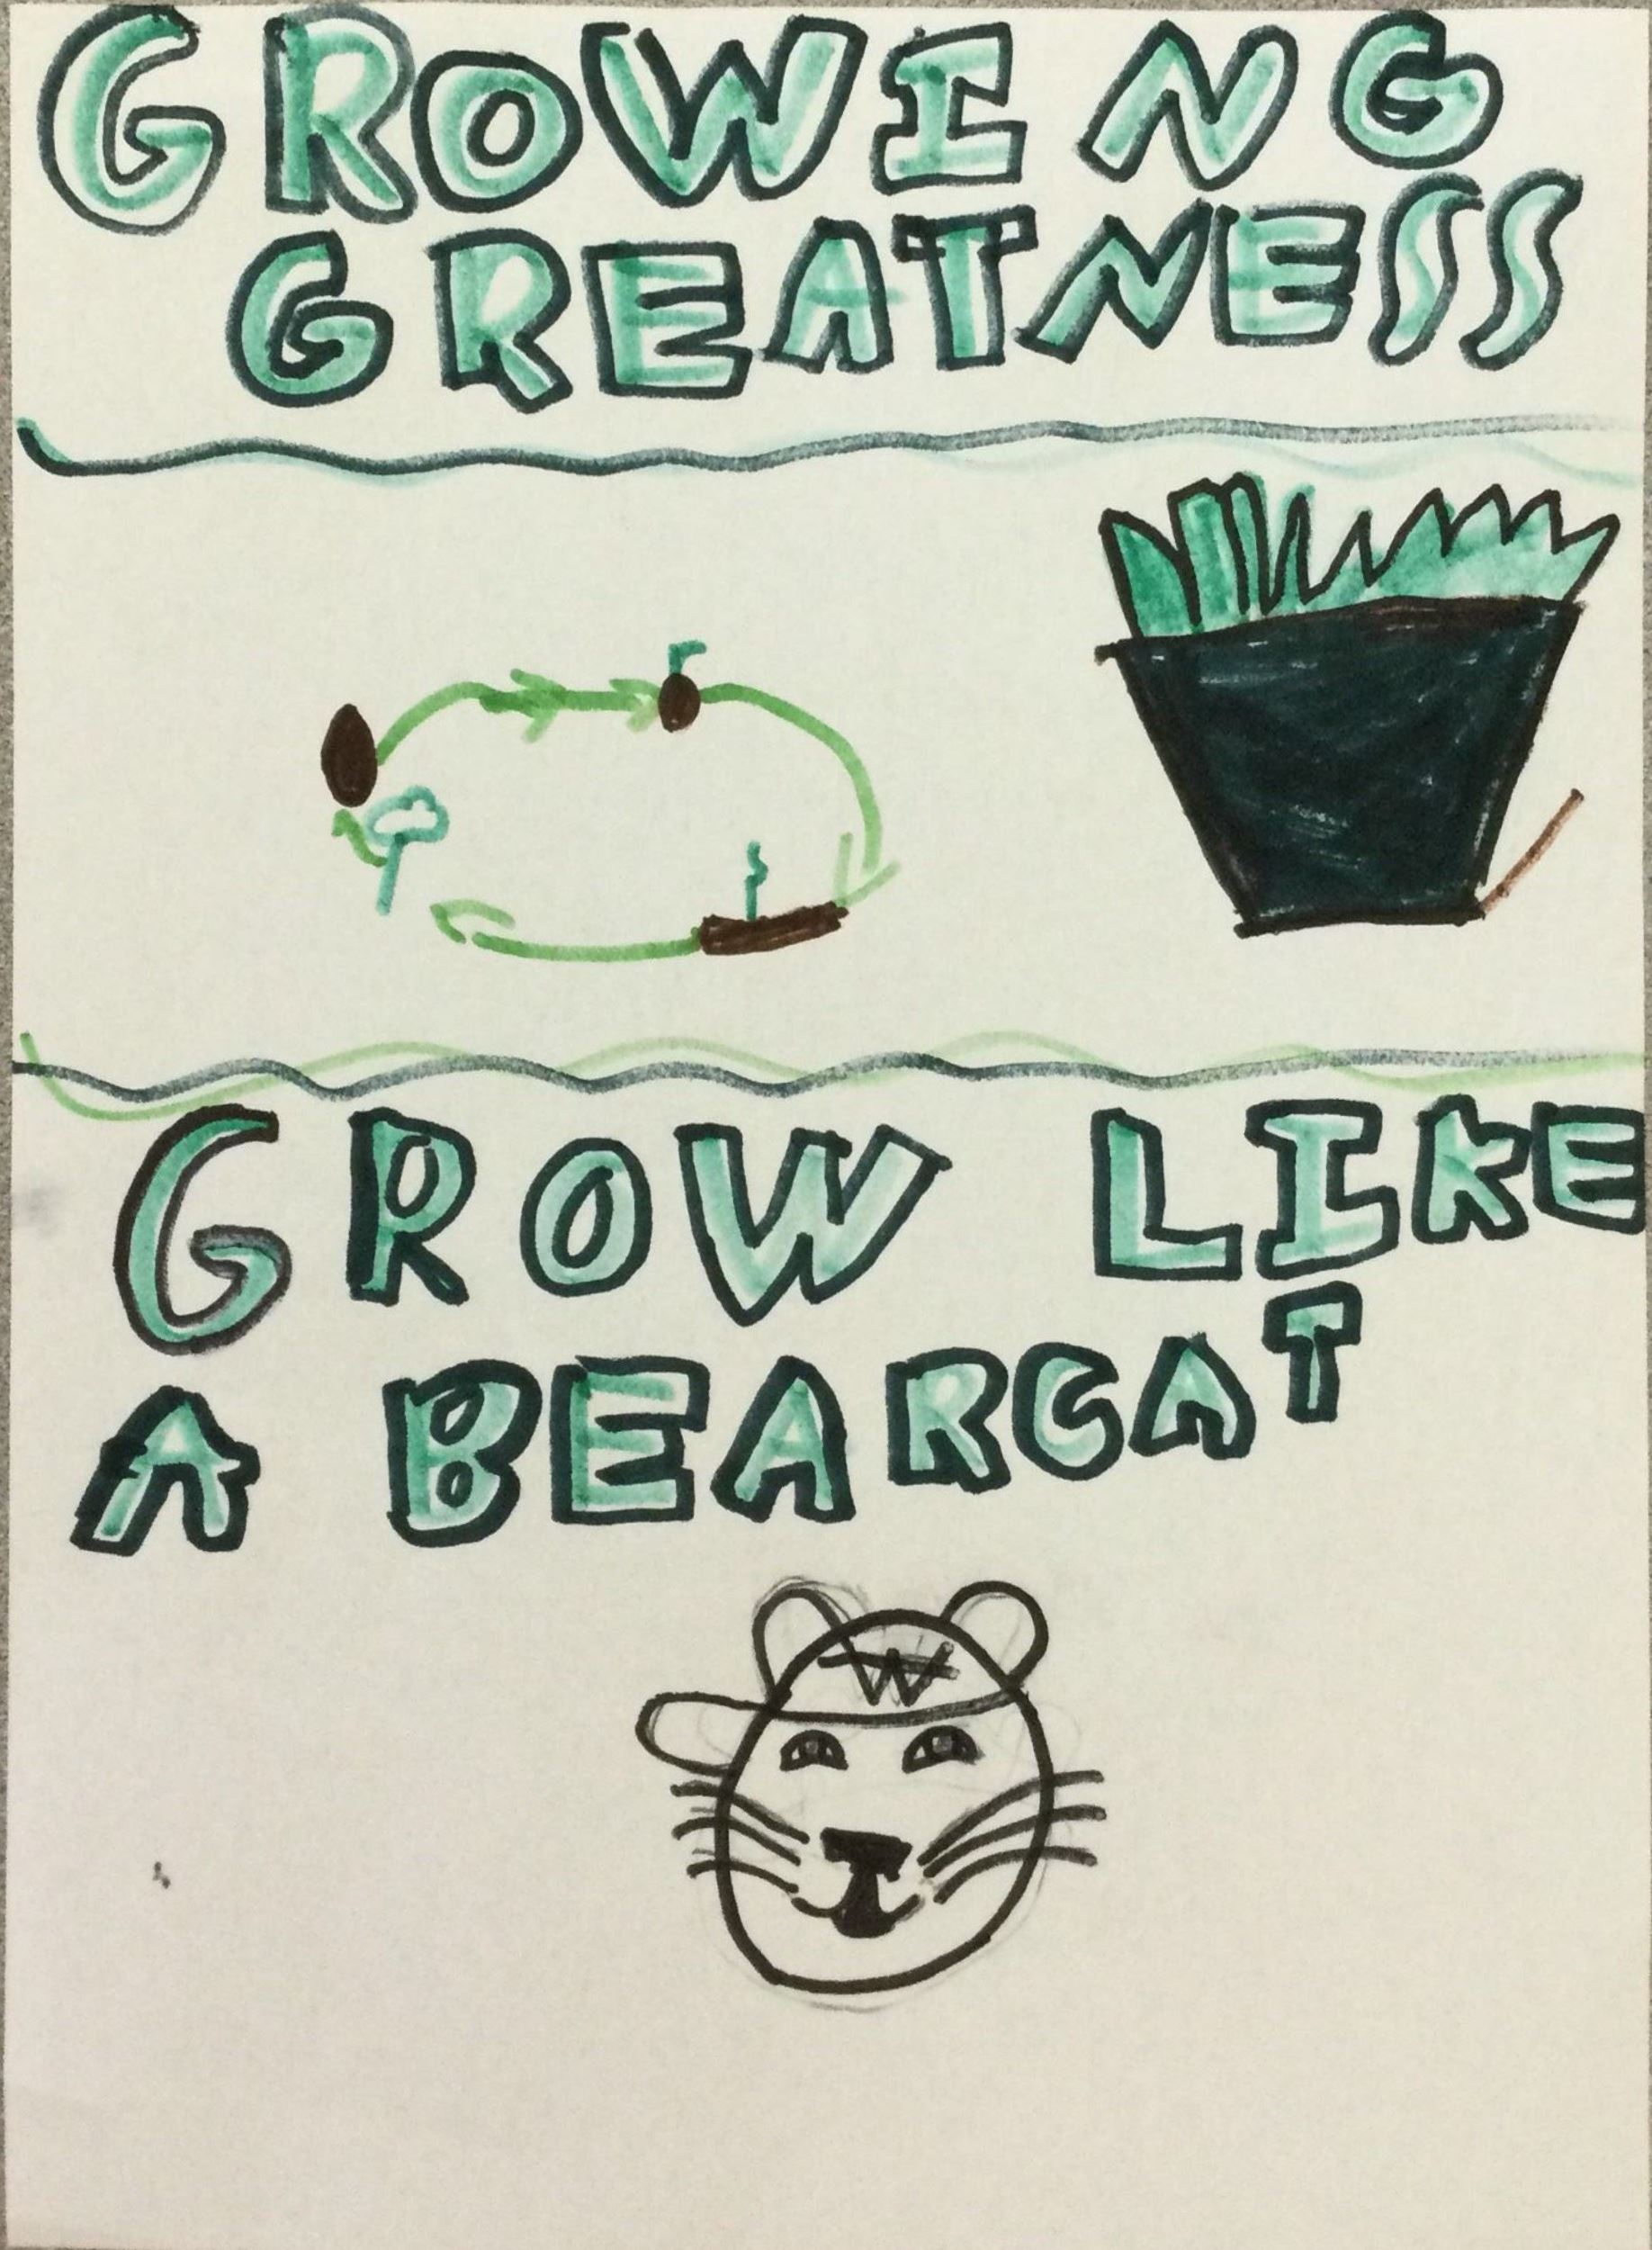 GROWING
GREATNESS
GROW LIKE
A BEARCAT
W